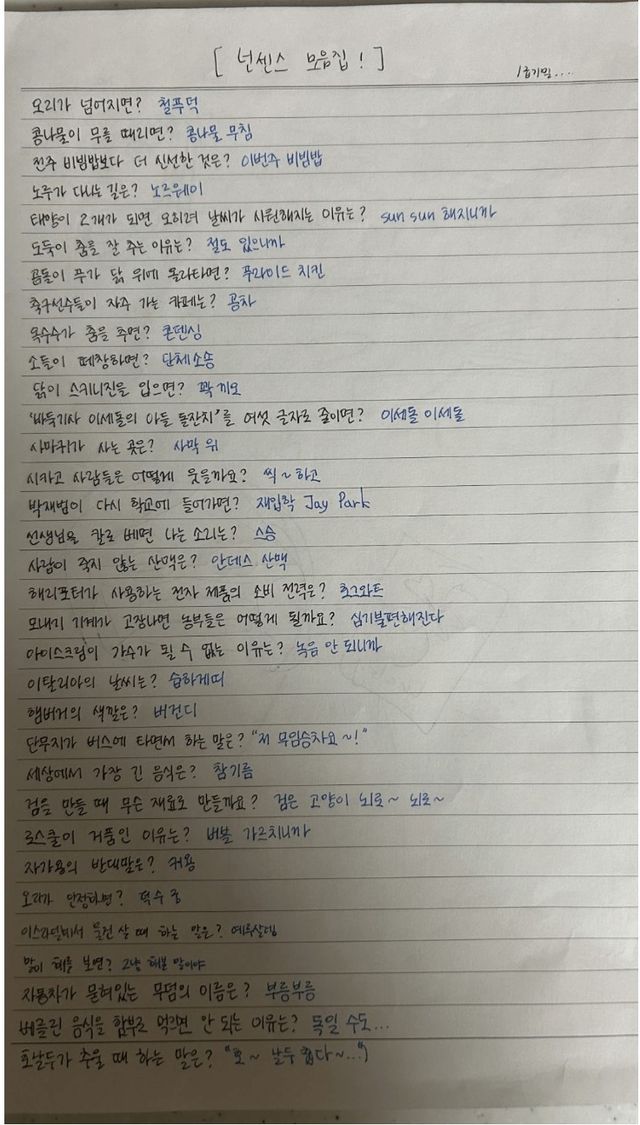 [ 넌센스 모음집! ]
1급기밀...
오리가 넘어지면? 철푸덕
콩나물이 무를 때리면? 콩나물 무침
전주 비빔밥보다 더 신선한 것은? 이번주 비빔밥
노루가 다니는 길은? 노르웨이
태양이 2개가 되면 오히려 날씨가 시원해지는 이유는? sun sun 해지니까
도둑이 춤을 잘 추는 이유는? 절도 있으니까
곰돌이 푸가 닭 위에 올라타면? 푸라이드 치킨
축구선수들이 자주 가는 카페는? 공차
옥수수가 춤을 추면? 콘댄싱
소들이 떼창하면? 단체소송
닭이 스키니진을 입으면? 꽉 끼오
'바둑기사 이세돌의 아들 돌잔치'를 여섯 글자로 줄이면? 이세돌 이세돌
사마귀가 사는 곳은? 사막 위
시카고 사람들은 어떻게 웃을까요? 씩~하고
박재범이 다시 학교에 들어가면? 재입학 Jay Park
선생님을 칼로 베면 나는 소리는? 스승
사람이 죽지 않는 산맥은? 안데스 산맥
해리포터가 사용하는 전자 제품의 소비 전력은? 호그와트
모내기 기계가 고장나면 농부들은 어떻게 될까요? 심기불편해진다
아이스크림이 가수가 될 수 없는 이유는? 녹음 안 되니까
이탈리아의 날씨는? 습하게띠
햄버거의 색깔은? 버건디
단무지가 버스에 타면서 하는 말은? "저 무임승차요~!"
세상에서 가장 긴 음식은? 참기름
검을 만들 때 무슨 재료로 만들까요? 검은 고양이 뇌로~ 뇌로~
로스쿨이 거품인 이유는? 버블 가르치니까
자가용의 반대말은? 커용
오리가 안정하면? 덕수궁
이스라엘에서 물건 살 때 하는 말은? 예루살렘
말이 해를 보면? 그냥 해본 말이야
자동차가 묻혀있는 무덤의 이름은? 부릉부릉
베를린 음식을 함부로 먹으면 안 되는 이유는? 독일 수도...
호날두가 추울 때 하는 말은? "호~ 날두 춥다~..."